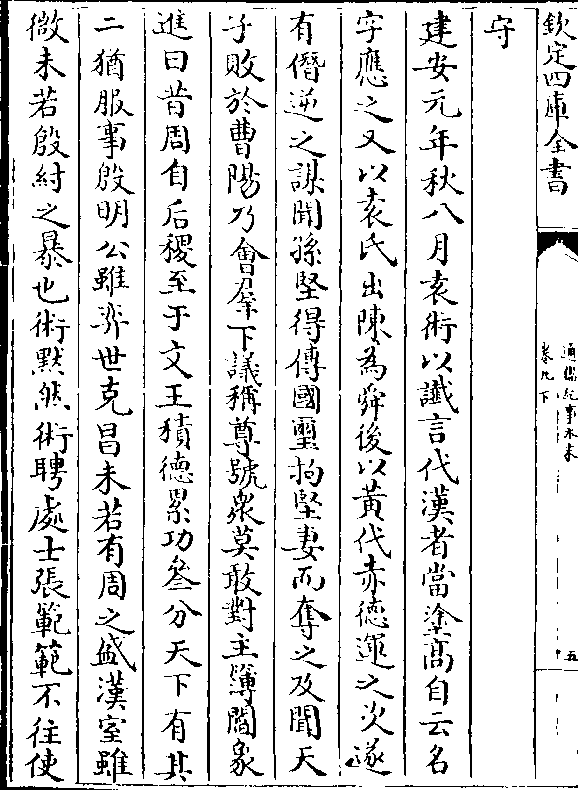 欽定四庫全書
通鑑紀事本末
卷九下
五
守
建安元年秋八月袁術以讖言代漢者當塗髙自云名
字應之又以袁氏出陳為舜後以黄代赤德運之次遂
有僭逆之謀聞孫堅得傳國璽拘堅妻而奪之及聞天
子敗於曹陽乃會羣下議稱尊號衆莫敢對主簿閻象
進曰昔周自后稷至于文王積德累功叁分天下有其
二猶服事殷明公雖奕世克昌未若有周之盛漢室雖
微未若殷紂之暴也術黙然術聘處士張範範不往使